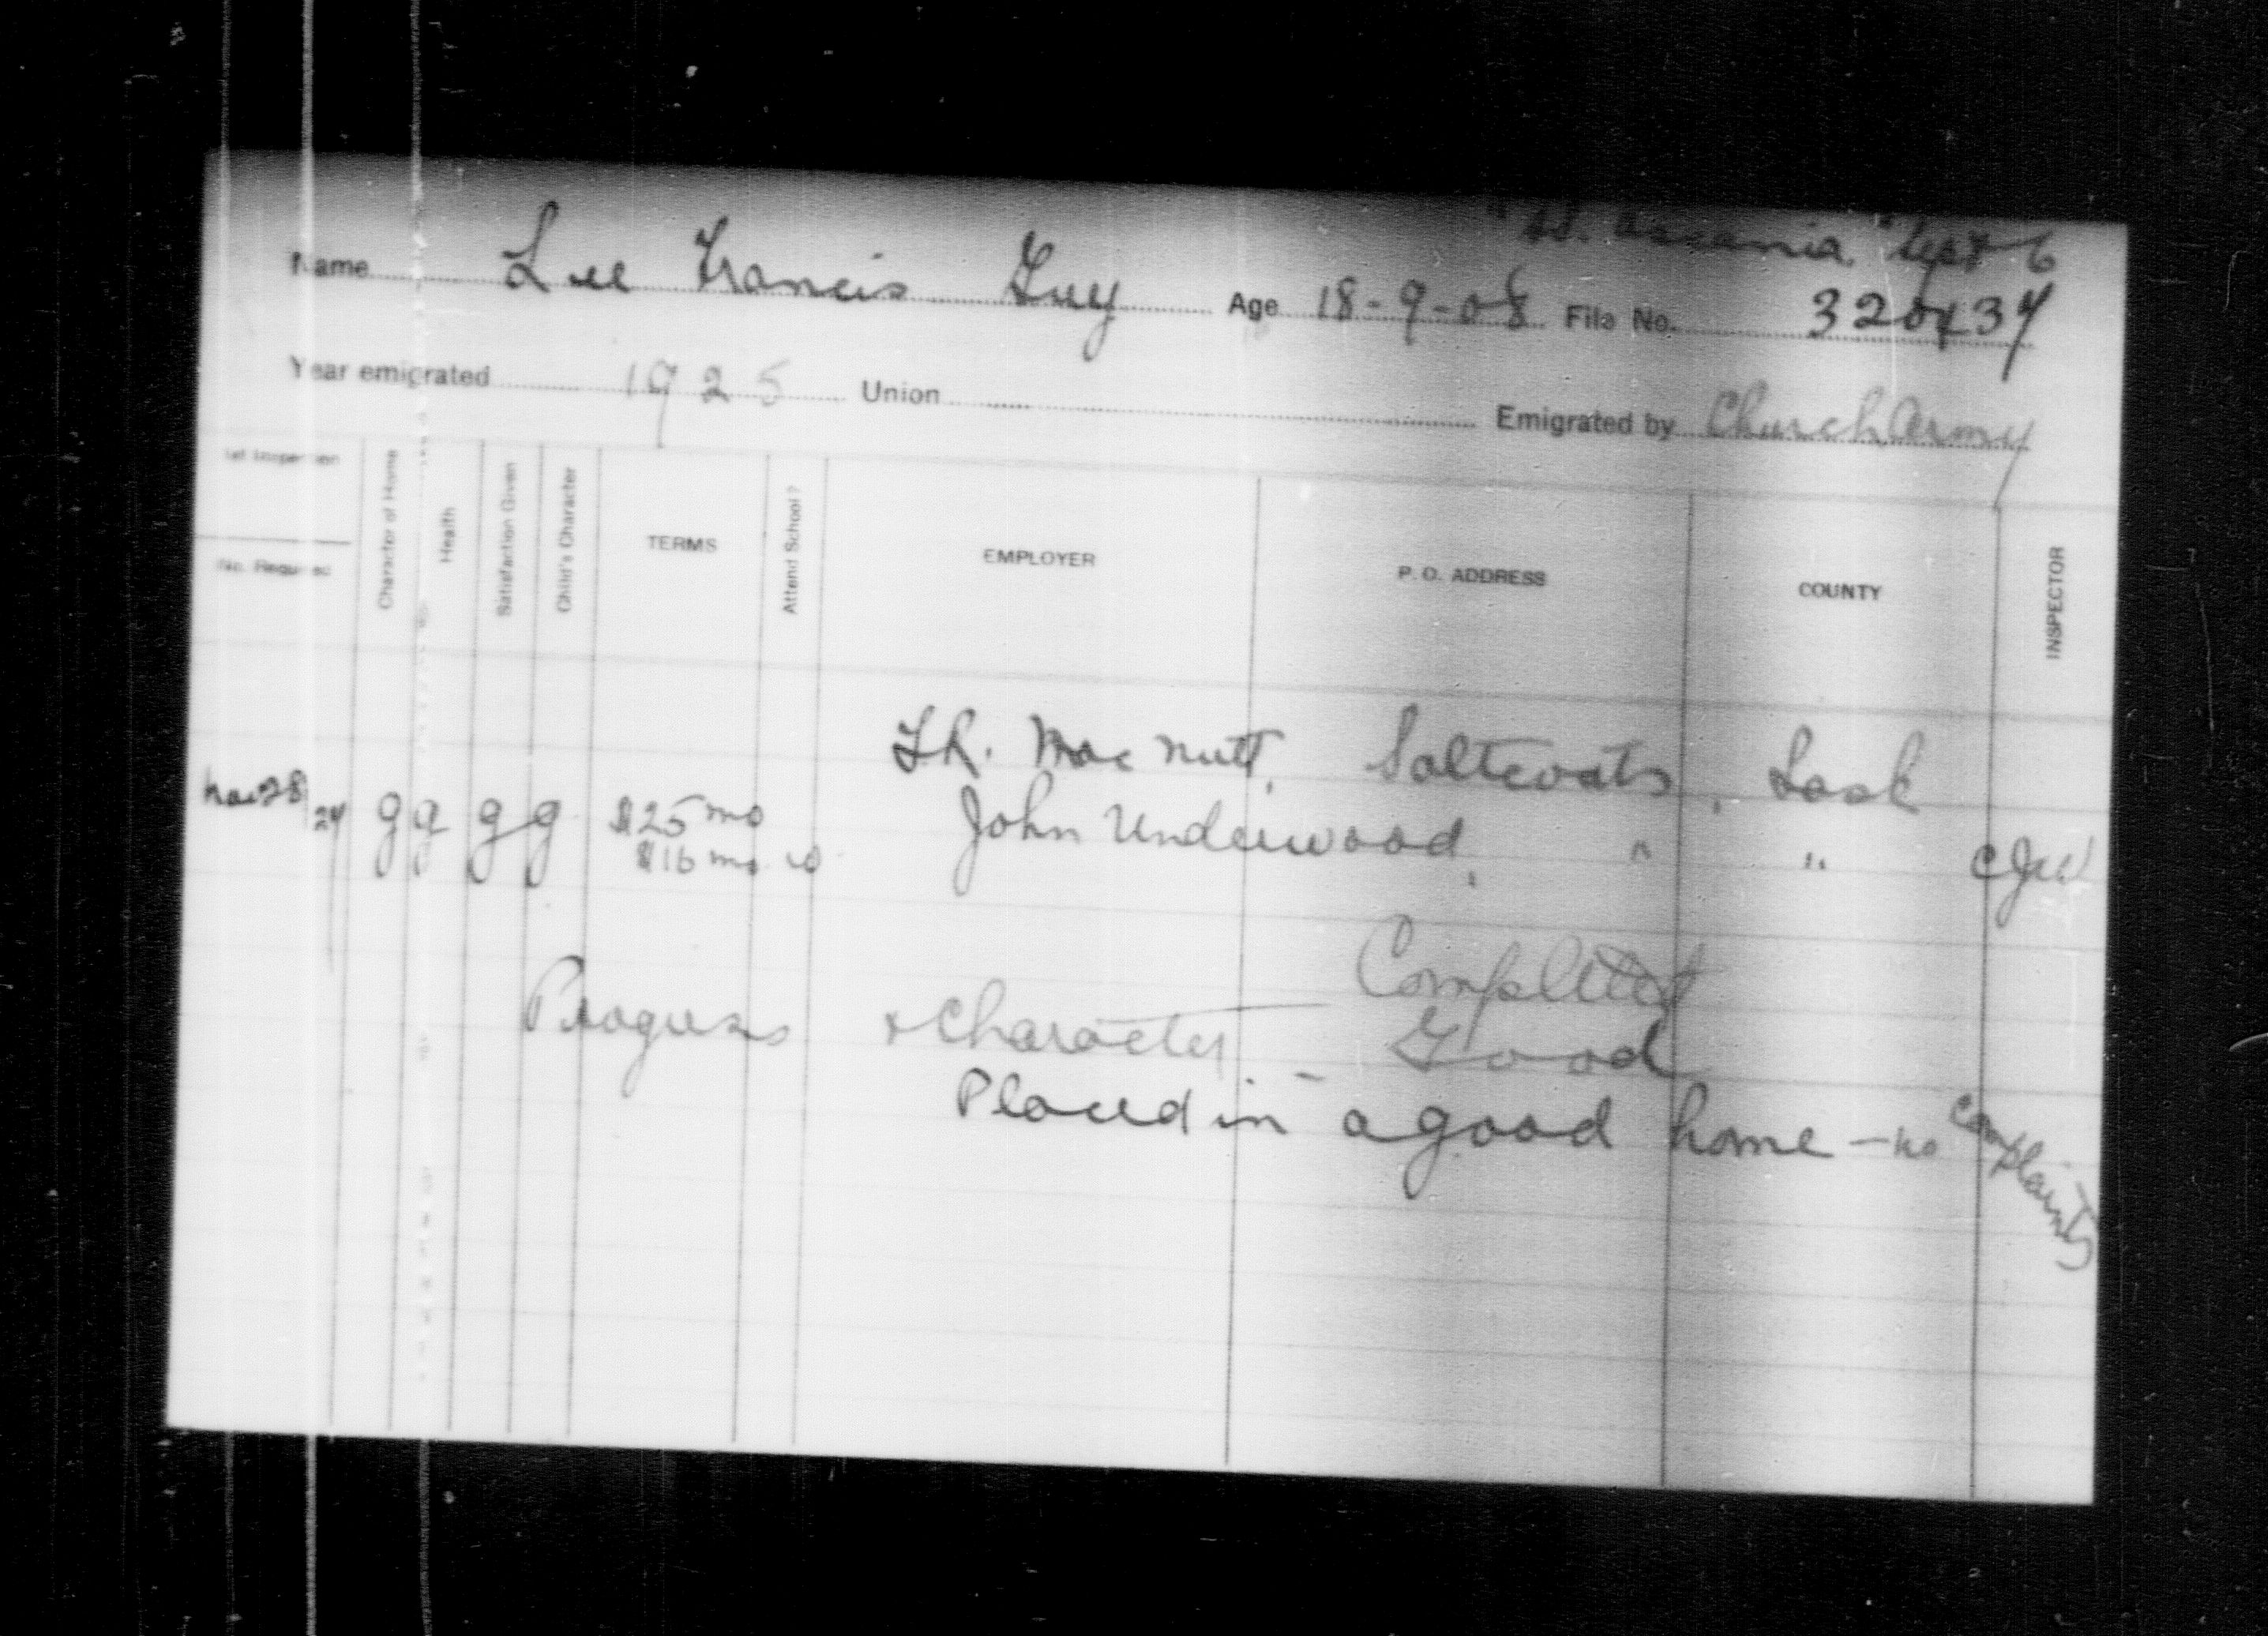 SS. Ascania. Sept 6
Name Lee Francis Guy Age 18-9-08 File No. 320434
Year emigrated 1925 Union Emigrated by Church Army
1st Inspection
No. Required
Character of Home
Health
Satisfaction Given
Child's Character
TERMS
Attend School?
EMPLOYER
P. O. ADDRESS
COUNTY
INSPECTOR
Mac Nutt, Saltcoats, Sask
28 g g g g $25 mo John Underwood, " "
$16 mo
Completed
Progress & Character - Good
Placed in a good home - no complaints